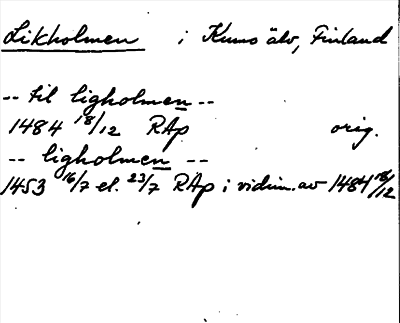 Likholmen i Kumo älv, Finland
-- til ligholmen --
1484 18/12 RAp orig.
-- ligholmen --
1453 16/7 el. 23/7 RAp i vidim. av 1484 18/12